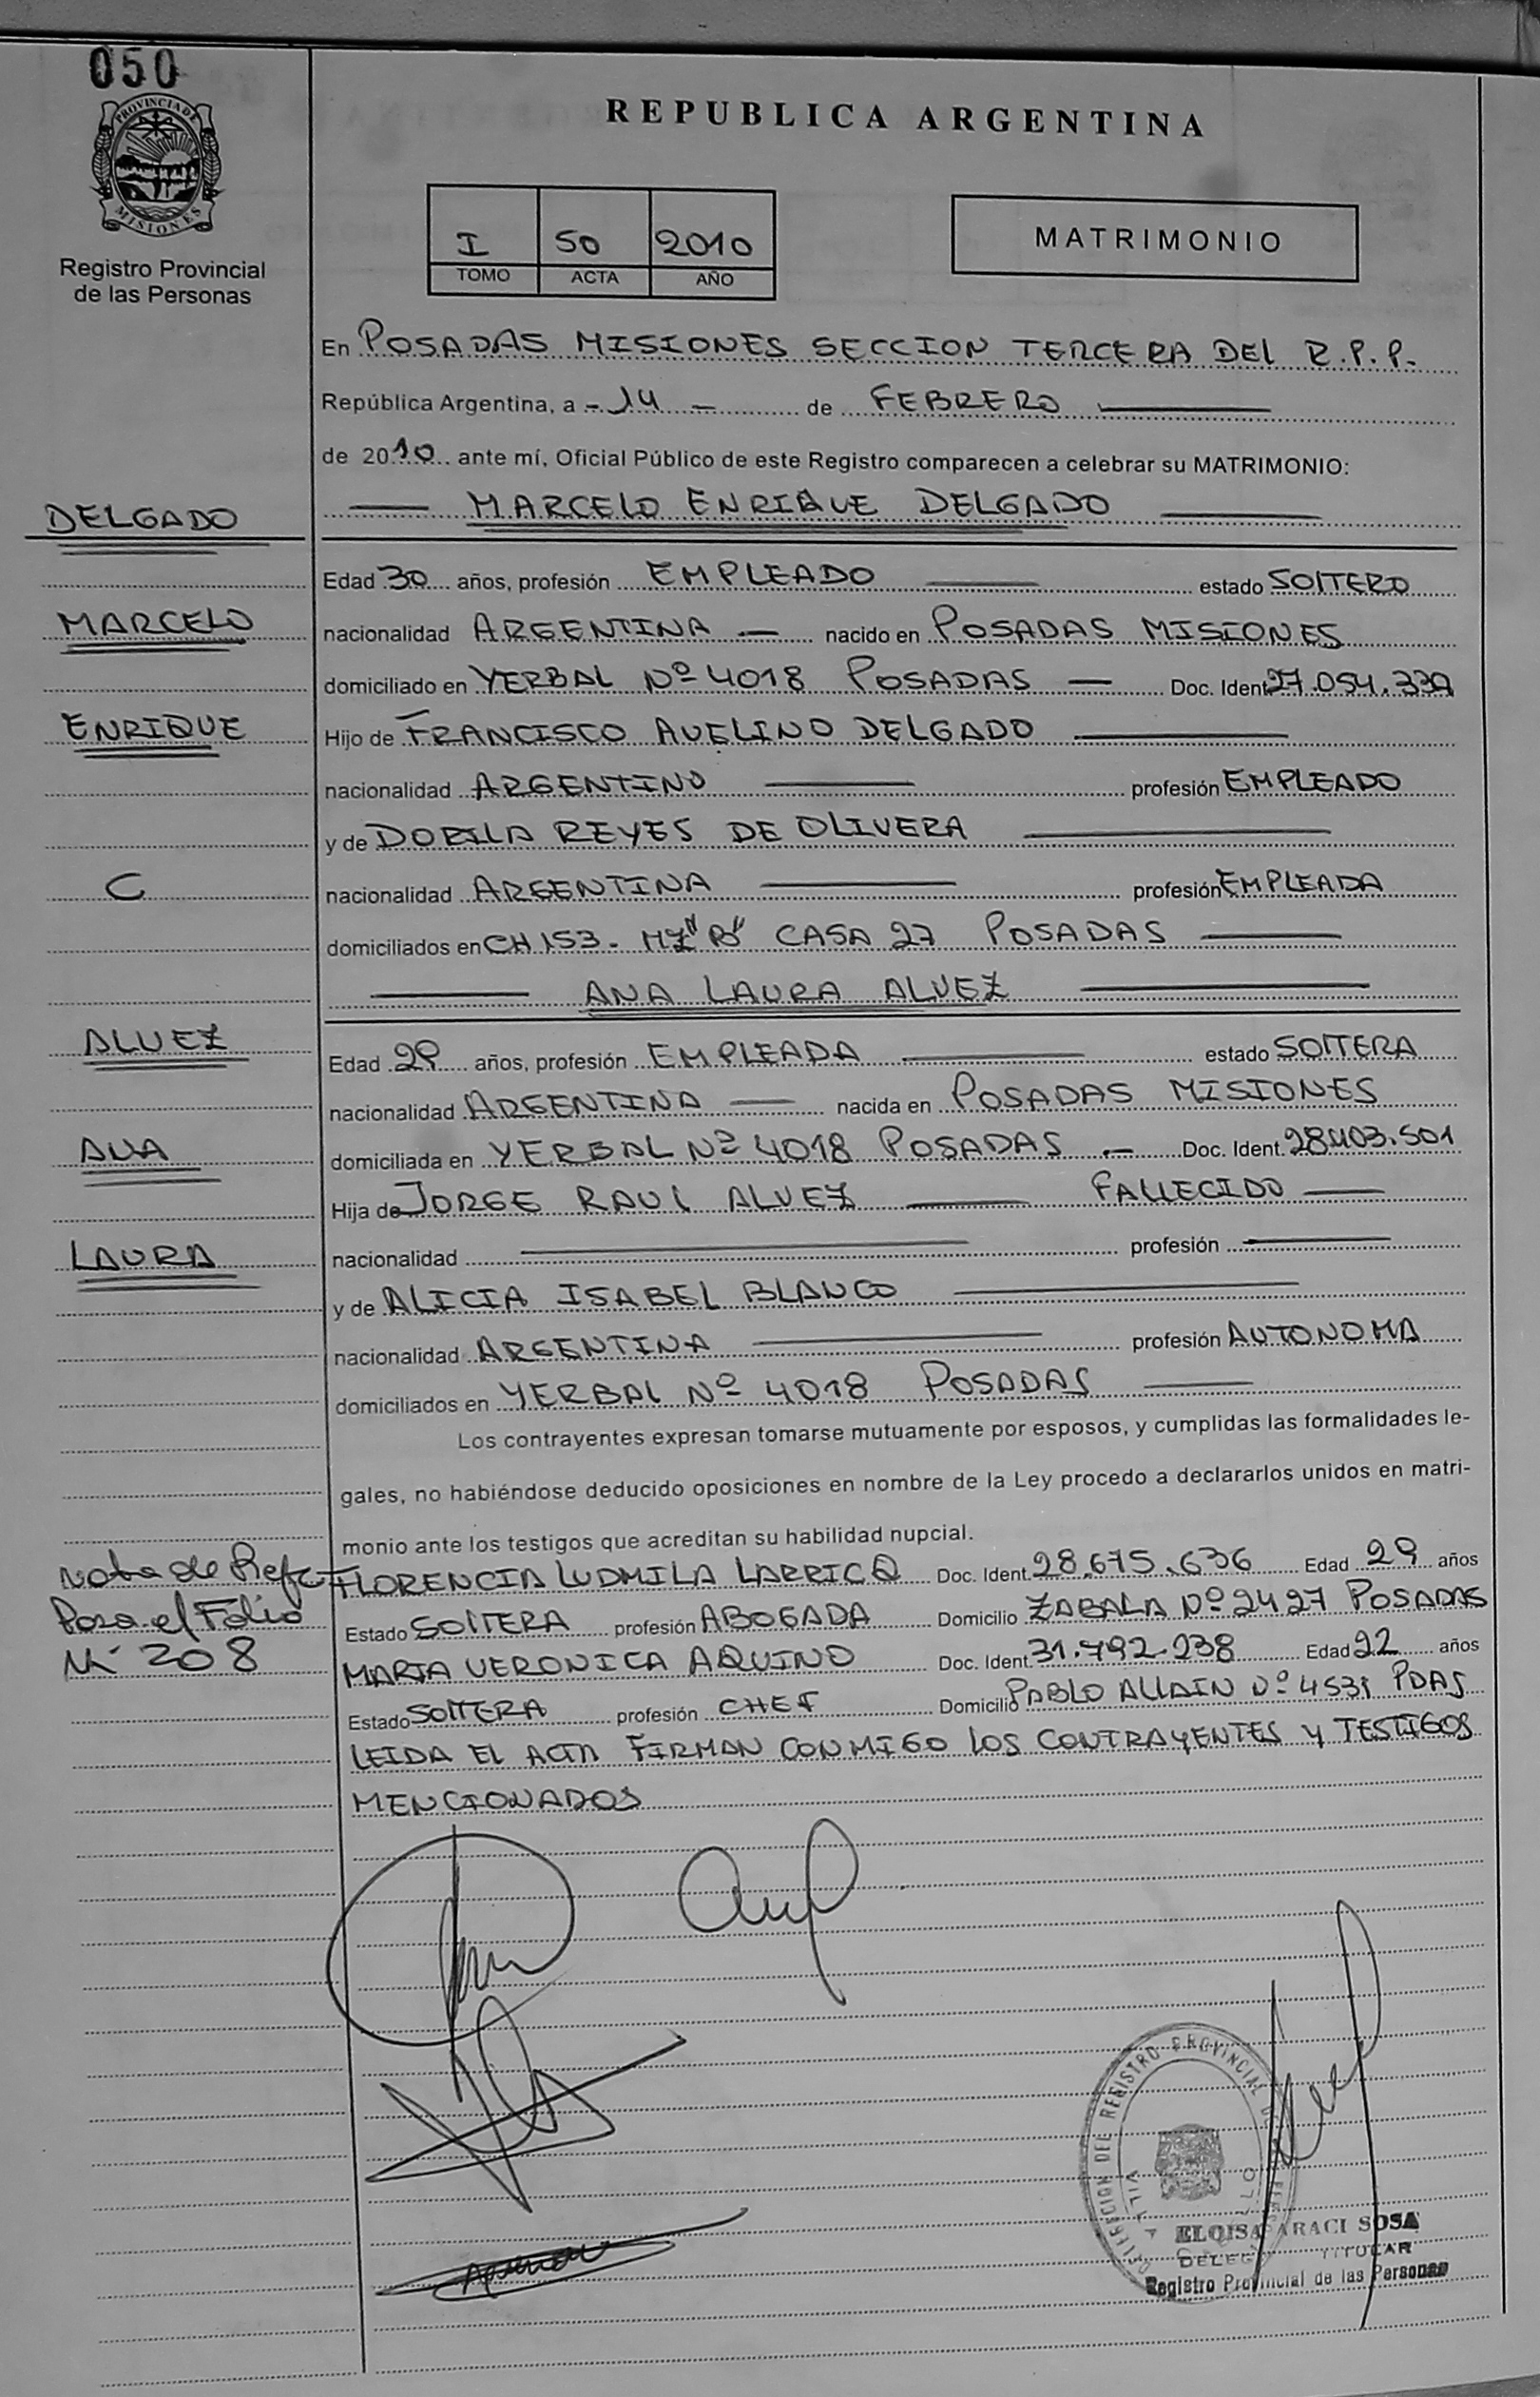 050
PROVINCIA DE
MISIONES
Registro Provincial
de las Personas
REPUBLICA ARGENTINA
I 50 2010
TOMO ACTA AÑO
MATRIMONIO
En POSADAS MISIONES SECCION TERCERA DEL R.P.P.
República Argentina, a - 14 - de FEBRERO
de 2010 ante mí, Oficial Público de este Registro comparecen a celebrar su MATRIMONIO:
DELGADO
MARCELO ENRIQUE DELGADO
Edad 30 años, profesión EMPLEADO estado SOLTERO
MARCELO
nacionalidad ARGENTINA nacido en POSADAS MISIONES
domiciliado en YERBAL Nº 4018 POSADAS Doc. Ident. 27.054.339
ENRIQUE
Hijo de FRANCISCO AVELINO DELGADO
nacionalidad ARGENTINO profesión EMPLEADO
y de DORILA REYES DE OLIVERA
C
nacionalidad ARGENTINA profesión EMPLEADA
domiciliados en CH 153 - MZ "B" CASA 27 POSADAS
ANA LAURA ALVEZ
ALVEZ
Edad 29 años, profesión EMPLEADA estado SOLTERA
nacionalidad ARGENTINA nacida en POSADAS MISIONES
ANA
domiciliada en YERBAL Nº 4018 POSADAS Doc. Ident. 28.403.501
Hija de JORGE RAUL ALVEZ FALLECIDO
LAURA
nacionalidad profesión
y de ALICIA ISABEL BLANCO
nacionalidad ARGENTINA profesión AUTONOMA
domiciliados en YERBAL Nº 4018 POSADAS
Los contrayentes expresan tomarse mutuamente por esposos, y cumplidas las formalidades le-
gales, no habiéndose deducido oposiciones en nombre de la Ley procedo a declararlos unidos en matri-
monio ante los testigos que acreditan su habilidad nupcial.
Nota de Refc
Pasa el Folio
Nº 208
FLORENCIA LUDMILA LARRICQ Doc. Ident. 28.675.636 Edad 29 años
Estado SOLTERA profesión ABOGADA Domicilio ZABALA Nº 2427 POSADAS
MARIA VERONICA AQUINO Doc. Ident. 31.792.238 Edad 22 años
Estado SOLTERA profesión CHEF Domicilio PABLO ALLAIN Nº 4531 PDAS
LEIDA EL ACTA FIRMAN CONMIGO LOS CONTRAYENTES Y TESTIGOS
MENCIONADOS
DIRECCION DEL REGISTRO PROVINCIAL
VILLA
ELOISA ARACI SOSA
TITULAR
Registro Provincial de las Personas